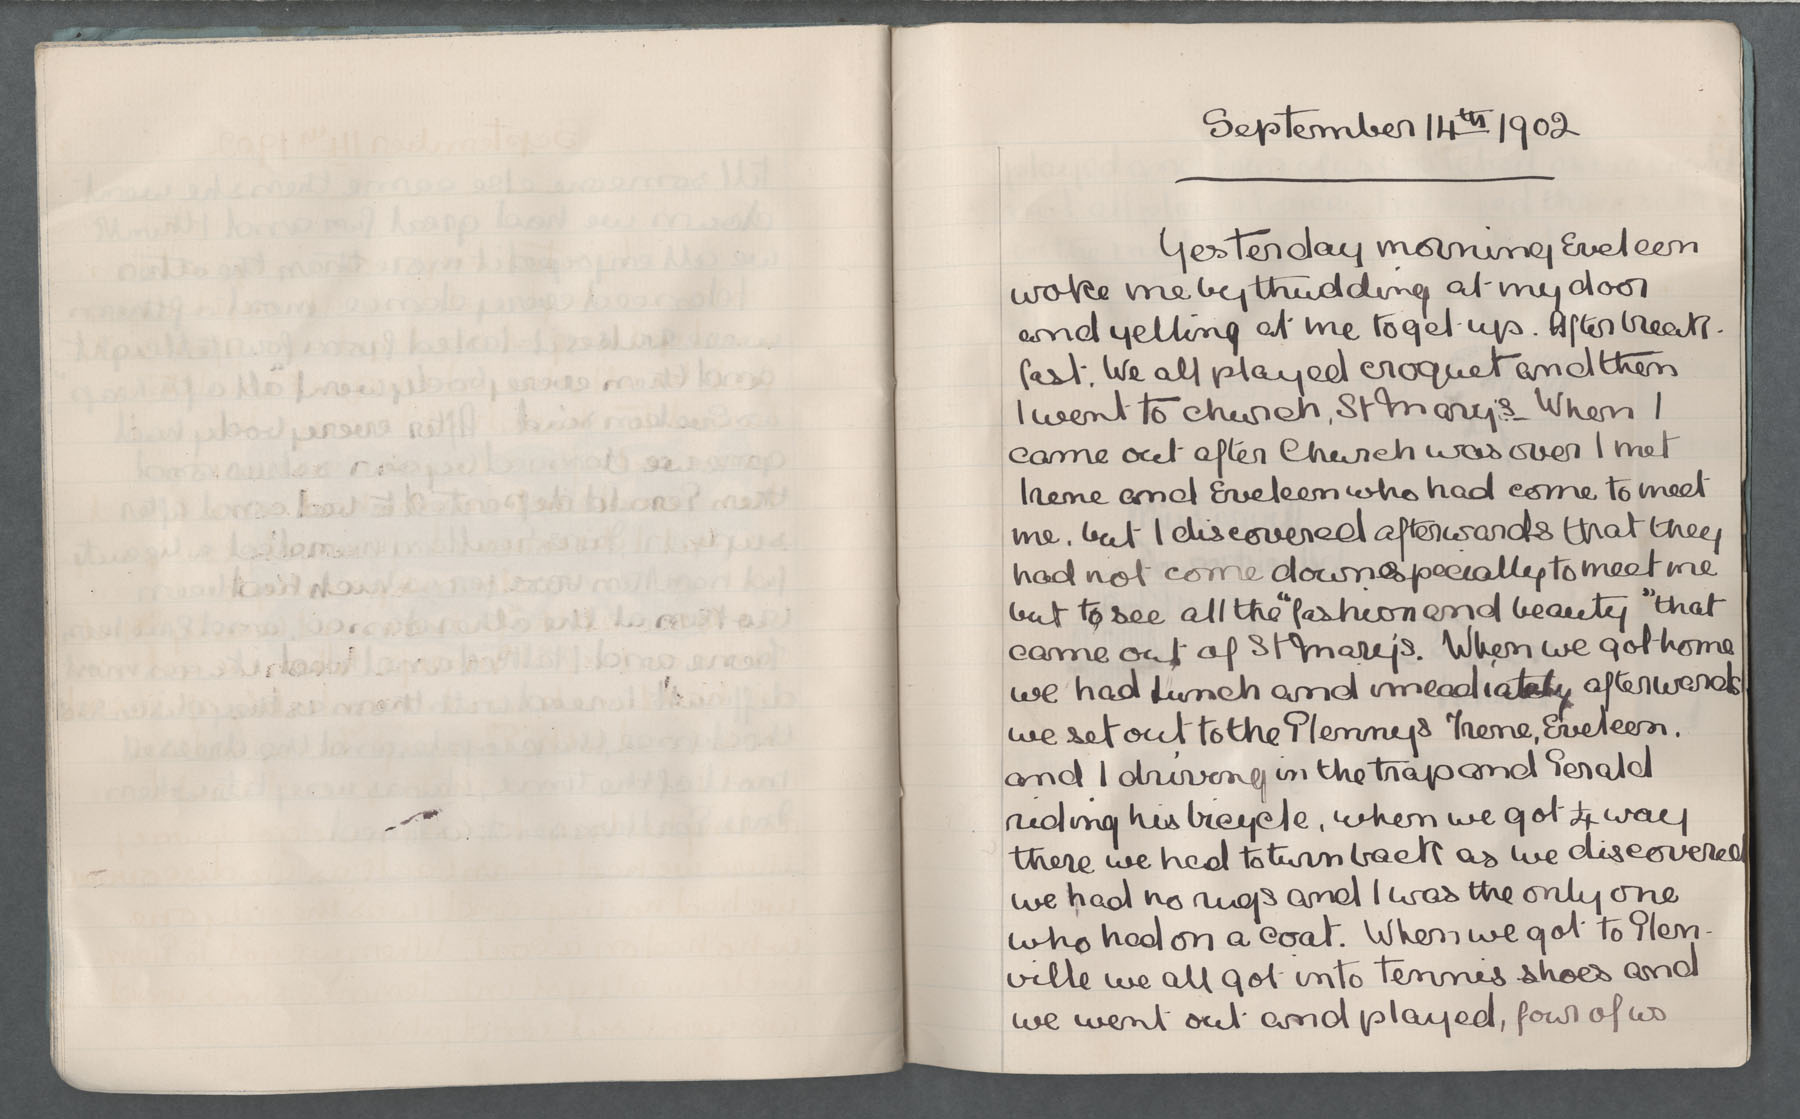 September 14th 1902
Yesterday morning Eveleen
woke me by thudding at my door
and yelling at me to get up. After break-
fast. We all played croquet and then
I went to church, St Mary's. When I
came out after Church was over I met
Irene and Eveleen who had come to meet
me. but I discovered afterwards that they
had not come down especially to meet me
but to see all the "fashion and beauty" that
came out of St Mary's. When we got home
we had lunch and imeadiately afterwards
we set out to the Glennys Irene, Eveleen.
and I driving in the trap and Gerald
riding his bicycle, when we got ¼ way
there we had to turn back as we discovered
we had no rugs and I was the only one
who had on a coat. When we got to Glen-
ville we all got into tennis shoes and
we went out and played, four of us